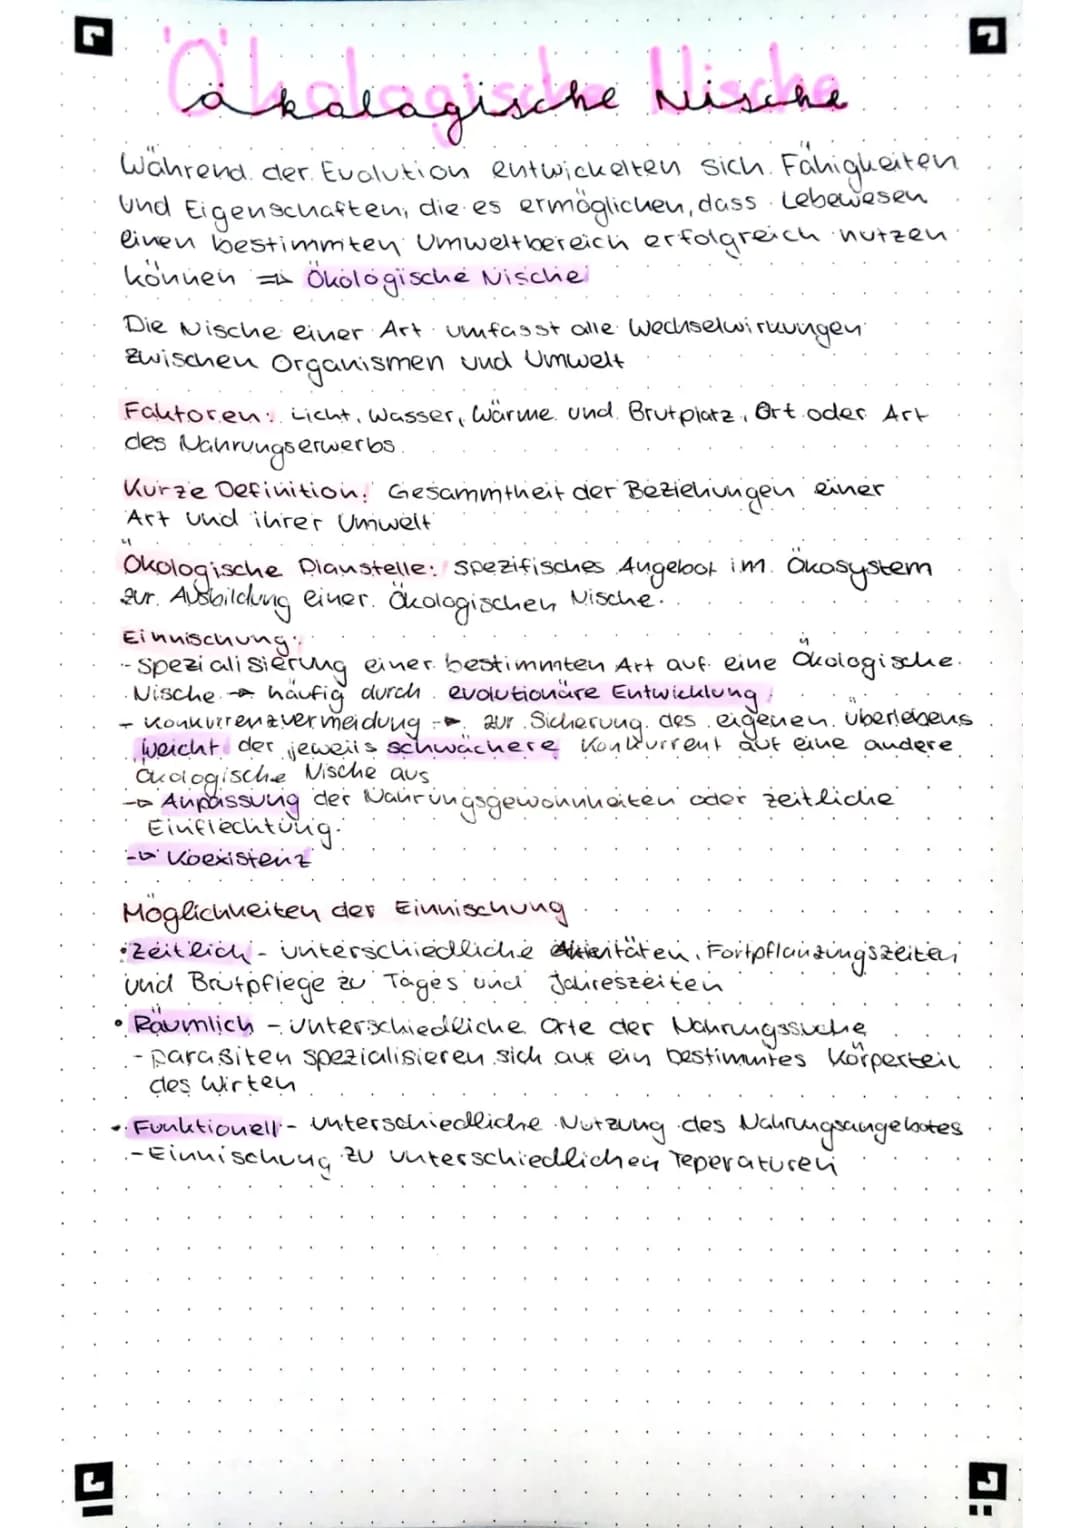 Ökologische Nische
Während der Evolution entwickelten sich Fähigkeiten
und Eigenschaften, die es ermöglichen, dass Lebewesen
einen bestimmten Umweltbereich erfolgreich nutzen
können ⇒ Ökologische Nische
Die Nische einer Art umfasst alle Wechselwirkungen
zwischen Organismen und Umwelt
Faktoren: Licht, Wasser, Wärme und Brutplatz, Ort oder Art
des Nahrungserwerbs
Kurze Definition: Gesammtheit der Beziehungen einer
Art und ihrer Umwelt
Ökologische Planstelle: spezifisches Angebot im Ökosystem
zur Ausbildung einer Ökologischen Nische.
Einnischung:
- Spezialisierung einer bestimmten Art auf eine Ökologische
Nische → häufig durch evolutionäre Entwicklung
- Konkurrenzvermeidung → zur Sicherung des eigenen überlebens
weicht der jeweils schwächere Konkurrent auf eine andere
ökologische Nische aus
→ Anpassung der Nahrungsgewohnheiten oder zeitliche
Einflechtung
→ Koexistenz
Möglichkeiten der Einnischung
• Zeitlich - unterschiedliche Aktivitäten, Fortpflanzungszeiten
und Brutpflege zu Tages und Jahreszeiten
• Räumlich - unterschiedliche Orte der Nahrungssuche
- parasiten spezialisieren sich auf ein bestimmtes Körperteil
des Wirten
• Funktionell - unterschiedliche Nutzung des Nahrungsangebotes
- Einnischung zu unterschiedlichen Teperaturen